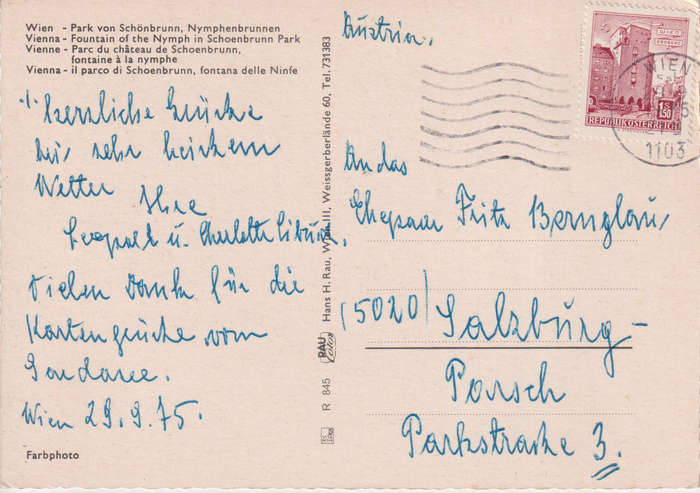 Wien - Park von Schönbrunn, Nymphenbrunnen
Vienna - Fountain of the Nymph in Schoenbrunn Park
Vienne - Parc du château de Schoenbrunn,
fontaine à la nymphe
Vienna - il parco di Schoenbrunn, fontana delle Ninfe
herzliche Grüße
bei sehr heissem
Wetter Ihre
Leopold u. Charlotte
Vielen Dank für die
Kartengrüße vom
Gardasee.
Wien 29.9.75.
Farbphoto
R 845 RAU Color Hans H. Rau, Wien III, Weissgerberlände 60, Tel. 731383
Austria.
WIEN
1103
1S50
REPUBLIK ÖSTERREICH
An das
Ehepaar Fritz Bernglau,
(5020) Salzburg-
Parsch
Parkstrasse 3.